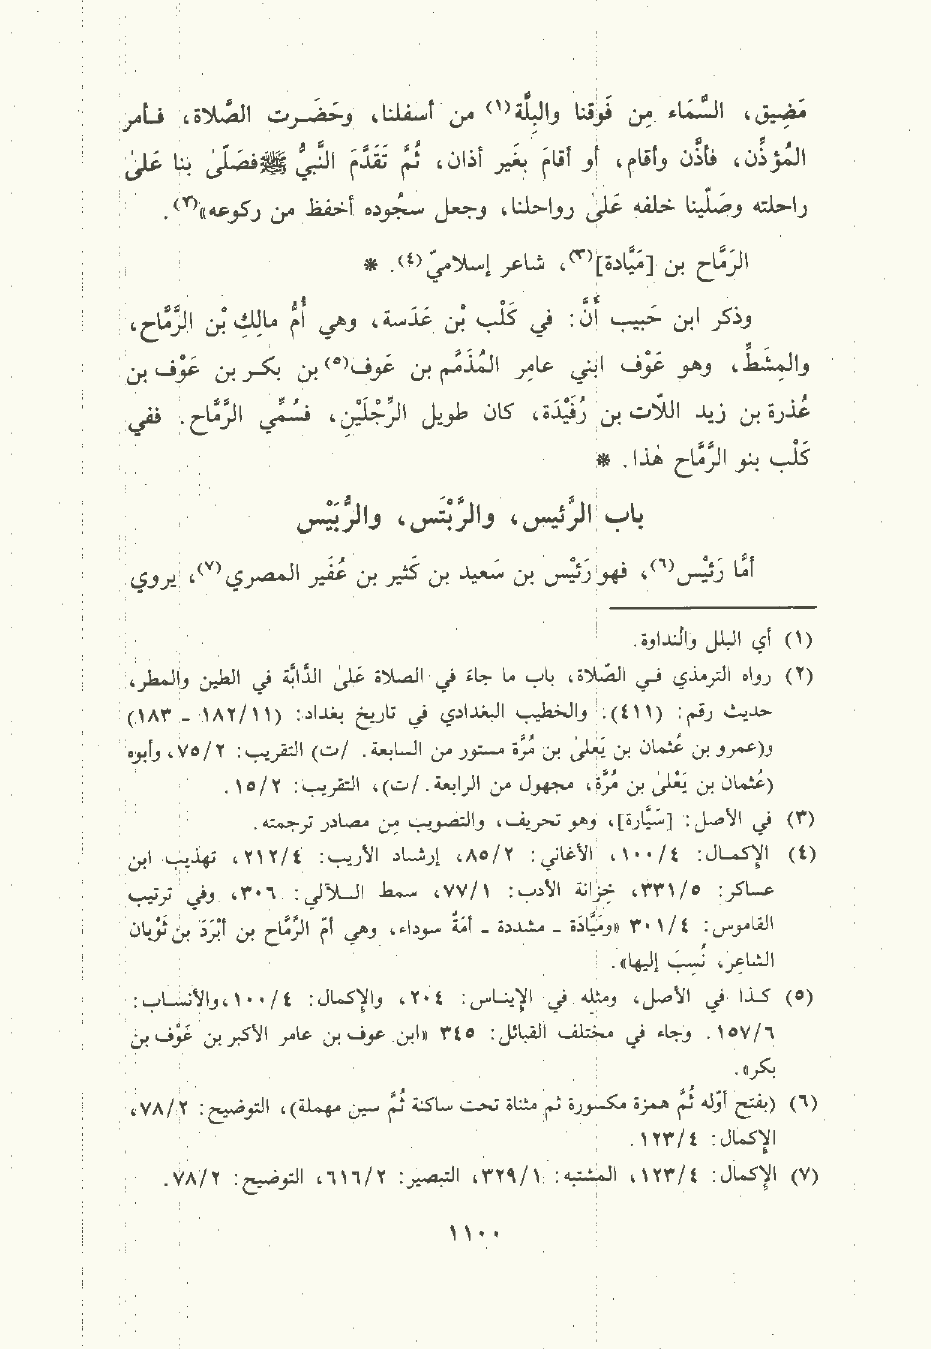 مَضِيق، السَّمَاء مِن فَوقنا والبِلَّة(١) من أسفلنا، وحَضَـرت الصَّلاة، فـأمر
المُؤذِّن، فأذَّن وأقام، أو أقامَ بغَير أذان، ثُمَّ تَقَدَّمَ النَّبيُّ ﷺ فصَلّىٰ بنا عَلىٰ
راحلته وصَلّينا خلفه عَلىٰ رواحلنا، وجعل سجُوده أخفظ من ركوعه»(٢).
الرَمَّاح بن [مَيَّادة](٣)، شاعر إسلاميّ(٤). *
وذكر ابن حَبيب أَنَّ: في كَلْب بْن عَدَسة، وهي أُمُّ مالِكِ بْن الرَّمَّاح،
والمِشَطِّ، وهو عَوْف ابْني عامِر المُذَمَّم بن عَوف(٥) بن بكـر بن عَوْف بن
عُذرة بن زيد اللّات بن رُفَيْدَة، كان طويل الرِّجْلَيْنِ، فسُمِّي الرَّمَّاح. ففي
كَلْب بنو الرَّمَّاح هٰذا. *
باب الرَّئيس، والرَّبْتَس، والرُّبَيْس
أمَّا رَئيْس(٦)، فهو رَئيْس بن سَعيد بن كَثير بن عُفَير المصري(٧)، يروي
(١) أي البلل والنداوة.
(٢) رواه الترمذي فـي الصّلاة، باب ما جاءَ في الصلاة عَلىٰ الدَّابَّة في الطين والمطر،
حديث رقم: (٤١١). والخطيب البغدادي في تاريخ بغداد: (١٨٢/١١ ـ ١٨٣)
و(عمرو بن عُثمان بن يَعلىٰ بن مُرَّة مستور من السابعة. /ت) التقريب: ٧٥/٢، وأبوه
(عُثمان بن يَعْلىٰ بن مُرَّة، مجهول من الرابعة. /ت)، التقريب: ١٥/٢.
(٣) في الأصل: [سَيَّارة]، وهو تحريف، والتصويب مِن مصادر ترجمته.
(٤) الإكمـال: ١٠٠/٤، الأغاني: ٨٥/٢، إرشـاد الأريب: ٢١٢/٤، تهذيب ابن
عساكر: ٣٣١/٥، خِزانة الأدب: ٧٧/١، سمط الـلآلي: ٣٠٦، وفي ترتيب
القاموس: ٣٠١/٤ «ومَيَّادَة ـ مشددة ـ أمَةٌ سوداء، وهي أمّ الرَّمَّاح بن أبْرَدَ بن ثَوْبان
الشاعِر، نُسِبَ إليها».
(٥) كـذا في الأصل، ومثله في الإينـاس: ٢٠٤، والإكمال: ١٠٠/٤، والأنسـاب:
١٥٧/٦. وجاء في مختلف القبائل: ٣٤٥ «ابن عوف بن عامر الأكبر بن عَوْف بن
بكر».
(٦) (بفتح أوّله ثُمَّ همزة مكسورة ثم مثناة تحت ساكنة ثُمَّ سين مهملة)، التوضيح: ٧٨/٢،
الإكمال: ١٢٣/٤.
(٧) الإكمال: ١٢٣/٤، المشتبه: ٣٢٩/١، التبصير: ٦١٦/٢، التوضيح: ٧٨/٢.
١١٠٠